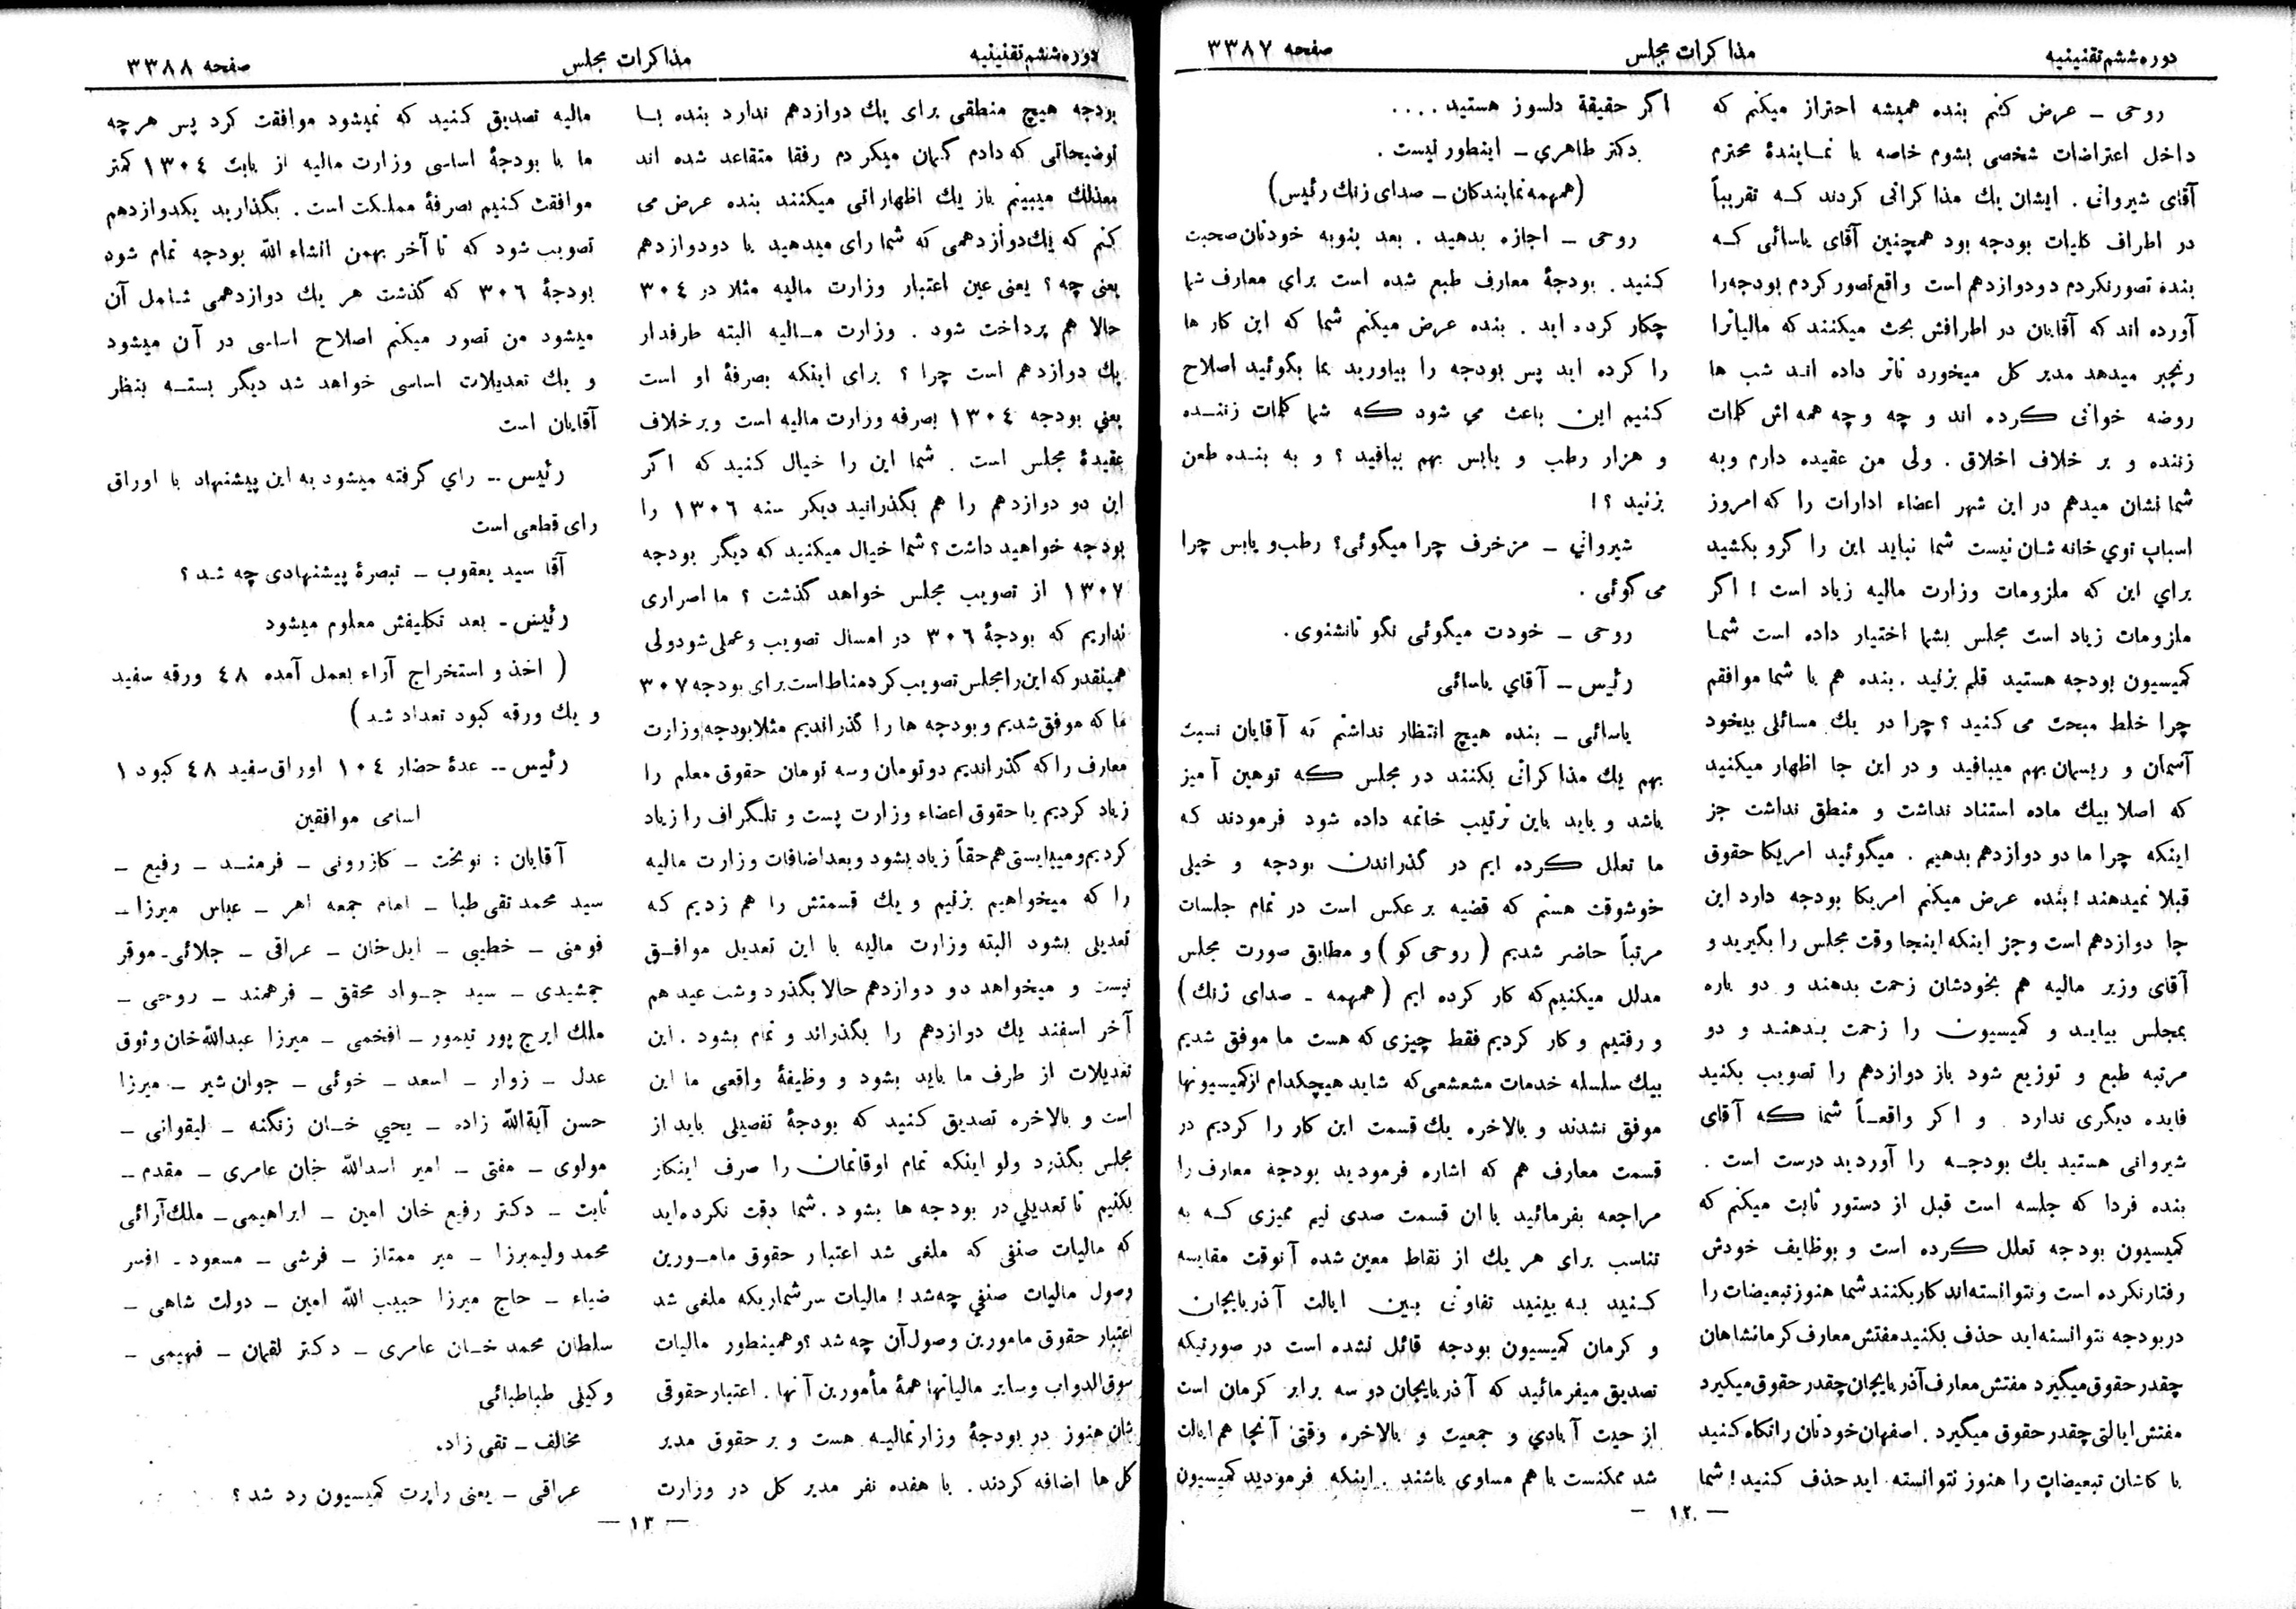 دوره ششم تقنینیه
مذاکرات مجلس
صفحه ۳۳۸۷
روحی ــ عرض کنم بنده همیشه احتراز میکنم که
داخل اعتراضات شخصی بشوم خاصه با نمـاینده محترم
آقای شیروانی . ایشان یك مذاکراتی کردند کـه تقریباً
در اطراف کلیات بودجه بود همچنین آقای یاسائی کـه
بنده تصورنکردم دودوازدهم است واقع تصور کردم بودجه را
آورده اند که آقایان در اطرافش بحث میکنند که مالیاترا
رنجبر میدهد مدیر کل میخورد تاتر داده انـد شب ها
روضه خوانی کرده اند و چه و چه همه اش کلمات
زننده و بر خلاف اخلاق . ولی من عقیده دارم وبه
شما نشان میدهم در این شهر اعضاء ادارات را که امروز
اسباب توی خانه شـان نیست شما نباید این را گرو بکشید
برای این که ملزومات وزارت مالیه زیاد است ! اگر
ملزومات زیاد است مجلس بشما اختیار داده است شمـا
کمیسیون بودجه هستید قلم بزنید . بنده هم با شما موافقم
چرا خلط مبحث می کنید ؟ چرا در یك مسائلی بیخود
آسمان و ریسمان بهم میبافید و در این جا اظهار میکنید
که اصلا بیك ماده استناد نداشت و منطق نداشت جز
اینکه چرا ما دو دوازدهم بدهیم . میگوئید امریکا حقوق
قبلا نمیدهند ! بنده عرض میکنم امریکا بودجه دارد این
جا دوازدهم است وجز اینکه اینجا وقت مجلس را بگیرید و
آقای وزیر مالیه هم بخودشان زحمت بدهند و دو باره
بمجلس بیایـد و کمیسیون را زحمت بـدهنـد و دو
مرتبه طبع و توزیع شود باز دوازدهم را تصویب بکنید
فایده دیگری ندارد . و اگر واقعـاً شما که آقای
شیروانی هستید یك بودجـه را آوردید درست است .
بنده فردا که جلسه است قبل از دستور ثابت میکنم که
کمیسیون بودجه تعلل کرده است و بوظایف خودش
رفتار نکرده است و نتوانسته اند کار بکنند شما هنوز تبعیضات را
در بودجه نتوانسته اید حذف بکنید مفتش معارف کرمانشاهان
چقدر حقوق میگیرد مفتش معارف آذربایجان چقدر حقوق میگیرد
مفتش ایالتی چقدر حقوق میگیرد . اصفهان خودتان را نگاه کنید
با کاشان تبعیضات را هنوز نتوانسته اید حذف کنید ! شما
اگر حقیقة دلسوز هستید . . . .
دکتر طاهری ــ اینطور نیست .
(همهمه نمایندگان ــ صدای زنك رئیس)
روحی ــ اجازه بدهید . بعد بنوبه خودتان صحبت
کنید . بودجهٔ معارف طبع شده است برای معارف شما
چکار کرده اید . بنده عرض میکنم شما که این کار ها
را کرده اید پس بودجه را بیاورید بما بگوئید اصلاح
کنیم این باعث می شود که شما کلمات زننـده
و هزار رطب و یابس بهم ببافید ؟ و به بنـده طعن
بزنید ؟ !
شیروانی ــ مزخرف چرا میگوئی؟ رطب و یابس چرا
می گوئی .
روحی ــ خودت میگوئی نگو تا نشنوی .
رئیس ــ آقای یاسائی
یاسائی ــ بنده هیچ انتظار نداشتم که آقایان نسبت
بهم یك مذاکراتی بکنند در مجلس که توهین آمیز
باشد و باید باین ترتیب خاتمه داده شود فرمودند که
ما تعلل کرده ایم در گذراندن بودجه و خیلی
خوشوقت هستم که قضیه بر عکس است در تمام جلسات
مرتباً حاضر شدیم ( روحی کو ) و مطابق صورت مجلس
مدلل میکنیم که کار کرده ایم ( همهمه ــ صدای زنك )
و رفتیم و کار کردیم فقط چیزی که هست ما موفق شدیم
بیك سلسله خدمات مشعشعی که شاید هیچکدام از کمیسیونها
موفق نشدند و بالاخره یك قسمت این کار را کردیم در
قسمت معارف هم که اشاره فرمودید بودجه معارف را
مراجعه بفرمائید با ان قسمت صدی نیم ممیزی کـه به
تناسب برای هر یك از نقاط معین شده آنوقت مقایسه
کنید بـه بینید تفاوتی بین ایالت آذربایجان
و کرمان کمیسیون بودجه قائل نشده است در صورتیکه
تصدیق میفرمائید که آذربایجان دو سه برابر کرمان است
از حیث آبادی و جمعیت و بالاخره وقتی آنجا هم ایالت
شد ممکنست باهم مساوی باشند . اینکه فرمودید کمیسیون
— ۱۲ —
دوره ششم تقنینیه
مذاکرات مجلس
صفحه ۳۳۸۸
بودجه هیچ منطقی برای یك دوازدهم ندارد بنده بـا
توضیحاتی که دادم گمان میکردم رفقا متقاعد شده اند
معذلك میبینم باز یك اظهاراتی میکنند بنده عرض می
کنم که یك دوازدهمی که شما رای میدهید یا دودوازدهم
یعنی چه ؟ یعنی عین اعتبار وزارت مالیه مثلا در ۳۰٤
حالا هم پرداخت شود . وزارت مـالیه البته طرفدار
یك دوازدهم است چرا ؟ برای اینکه بصرفهٔ او است
یعنی بودجه ۱۳۰٤ بصرفه وزارت مالیه است وبرخلاف
عقیدهٔ مجلس است . شما این را خیال کنید که اگر
این دو دوازدهم را هم بگذرانید دیگر سنه ۱۳۰٦ را
بودجه خواهید داشت ؟ شما خیال میکنید که دیگر بودجه
۱۳۰۷ از تصویب مجلس خواهد گذشت ؟ ما اصراری
نداریم که بودجهٔ ۳۰٦ در امسال تصویب وعملی شودولی
همینقدر که این را مجلس تصویب کرد مناط است برای بودجه ۳۰۷
ما که موفق شدیم و بودجه ها را گذراندیم مثلا بودجه وزارت
معارف را که گذراندیم دوتومان وسه تومان حقوق معلم را
زیاد کردیم یا حقوق اعضاء وزارت پست و تلگراف را زیاد
کردیم و میبایستی هم حقاً زیاد بشود و بعد اضافات وزارت مالیه
را که میخواهیم بزنیم و یك قسمتش را هم زدیم که
تعدیلی بشود البته وزارت مالیه با این تعدیل موافـق
نیست و میخواهد دو دوازدهم حالا بگذرد وشب عید هم
آخر اسفند یك دوازدهم را بگذراند و تمام بشود . این
تعدیلات از طرف ما باید بشود و وظیفهٔ واقعی ما این
است و بالاخره تصدیق کنید که بودجهٔ تفصیلی باید از
مجلس بگذرد ولو اینکه تمام اوقاتمان را صرف اینکار
بکنیم تا تعدیلی در بودجه ها بشود . شما دقت نکرده اید
که مالیات صنفی که ملغی شد اعتبار حقوق مامـورین
وصول مالیات صنفی چه شد ! مالیات سرشماریکه ملغی شد
اعتبار حقوق مامورین وصول آن چه شد ؟ و همینطور مالیات
سوق الدواب وسایر مالیاتها ! همهٔ مأمورین آنها . اعتبار حقوقی
شان هنوز در بودجهٔ وزارتمالیـه هست و بر حقوق مدیر
کل ها اضافه کردند . با هفده نفر مدیر کل در وزارت
مالیه تصدیق کنید که نمیشود موافقت کرد پس هرچه
ما با بودجهٔ اساسی وزارت مالیه از بابت ۱۳۰٤ کمتر
موافقت کنیم بصرفهٔ مملکت است . بگذارید یکدوازدهم
تصویب شود که تا آخر بهمن انشاء الله بودجه تمام شود
بودجهٔ ۳۰٦ که گذشت هر یك دوازدهمی شـامل آن
میشود من تصور میکنم اصلاح اساسی در آن میشود
و یك تعدیلات اساسی خواهد شد دیگر بستـه بنظر
آقایان است
رئیس ــ رای گرفته میشود به این پیشنهاد با اوراق
رای قطعی است
آقا سید یعقوب ــ تبصرهٔ پیشنهادی چه شـد ؟
رئیس ــ بعد تکلیفش معلوم میشود
( اخذ و استخراج آراء بعمل آمده ٤۸ ورقه سفید
و یك ورقه کبود تعداد شـد )
رئیس ــ عدهٔ حضار ۱۰٤ اوراق سفید ٤۸ کبود ۱
اسامی موافقین
آقایان : نوبخت ــ کازرونی ــ فرمنـد ــ رفیع ــ
سید محمد تقی طبا ــ امام جمعه اهر ــ عباس میرزا ــ
فومنی ــ خطیبی ــ ایل خان ــ عراقی ــ جلائی ــ موقر
جمشیدی ــ سید جـواد محقق ــ فرهمند ــ روحی ــ
ملك ایرج پور تیمور ــ افخمی ــ میرزا عبدالله خان وثوق
عدل ــ زوار ــ اسعد ــ خوئی ــ جوان شیر ــ میرزا
حسن آیةالله زاده ــ یحیی خـان زنگنه ــ لیقوانی ــ
مولوی ــ مفتی ــ امیر اسدالله خان عامری ــ مقدم ــ
ثابت ــ دکتر رفیع خان امین ــ ابراهیمی ــ ملك آرائی
محمد ولیمیرزا ــ میر ممتاز ــ فرشی ــ مسعود ــ افسر
ضیاء ــ حاج میرزا حبیب الله امین ــ دولت شاهی ــ
سلطان محمد خـان عامری ــ دکتر لقمان ــ فهیمی ــ
وکیلی طباطبائی
مخالف ــ تقی زاده
عراقی ــ یعنی راپرت کمیسیون رد شد ؟
— ۱۳ —